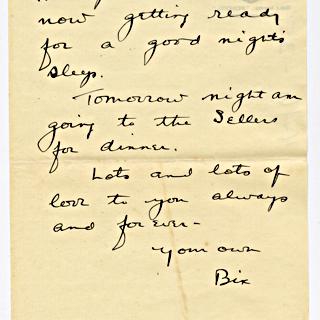 now getting ready
for a good night's
sleep.
Tomorrow night am
going to the Sellers
for dinner.
Lots and lots of
love to you always
and forever-
Your own
Bix